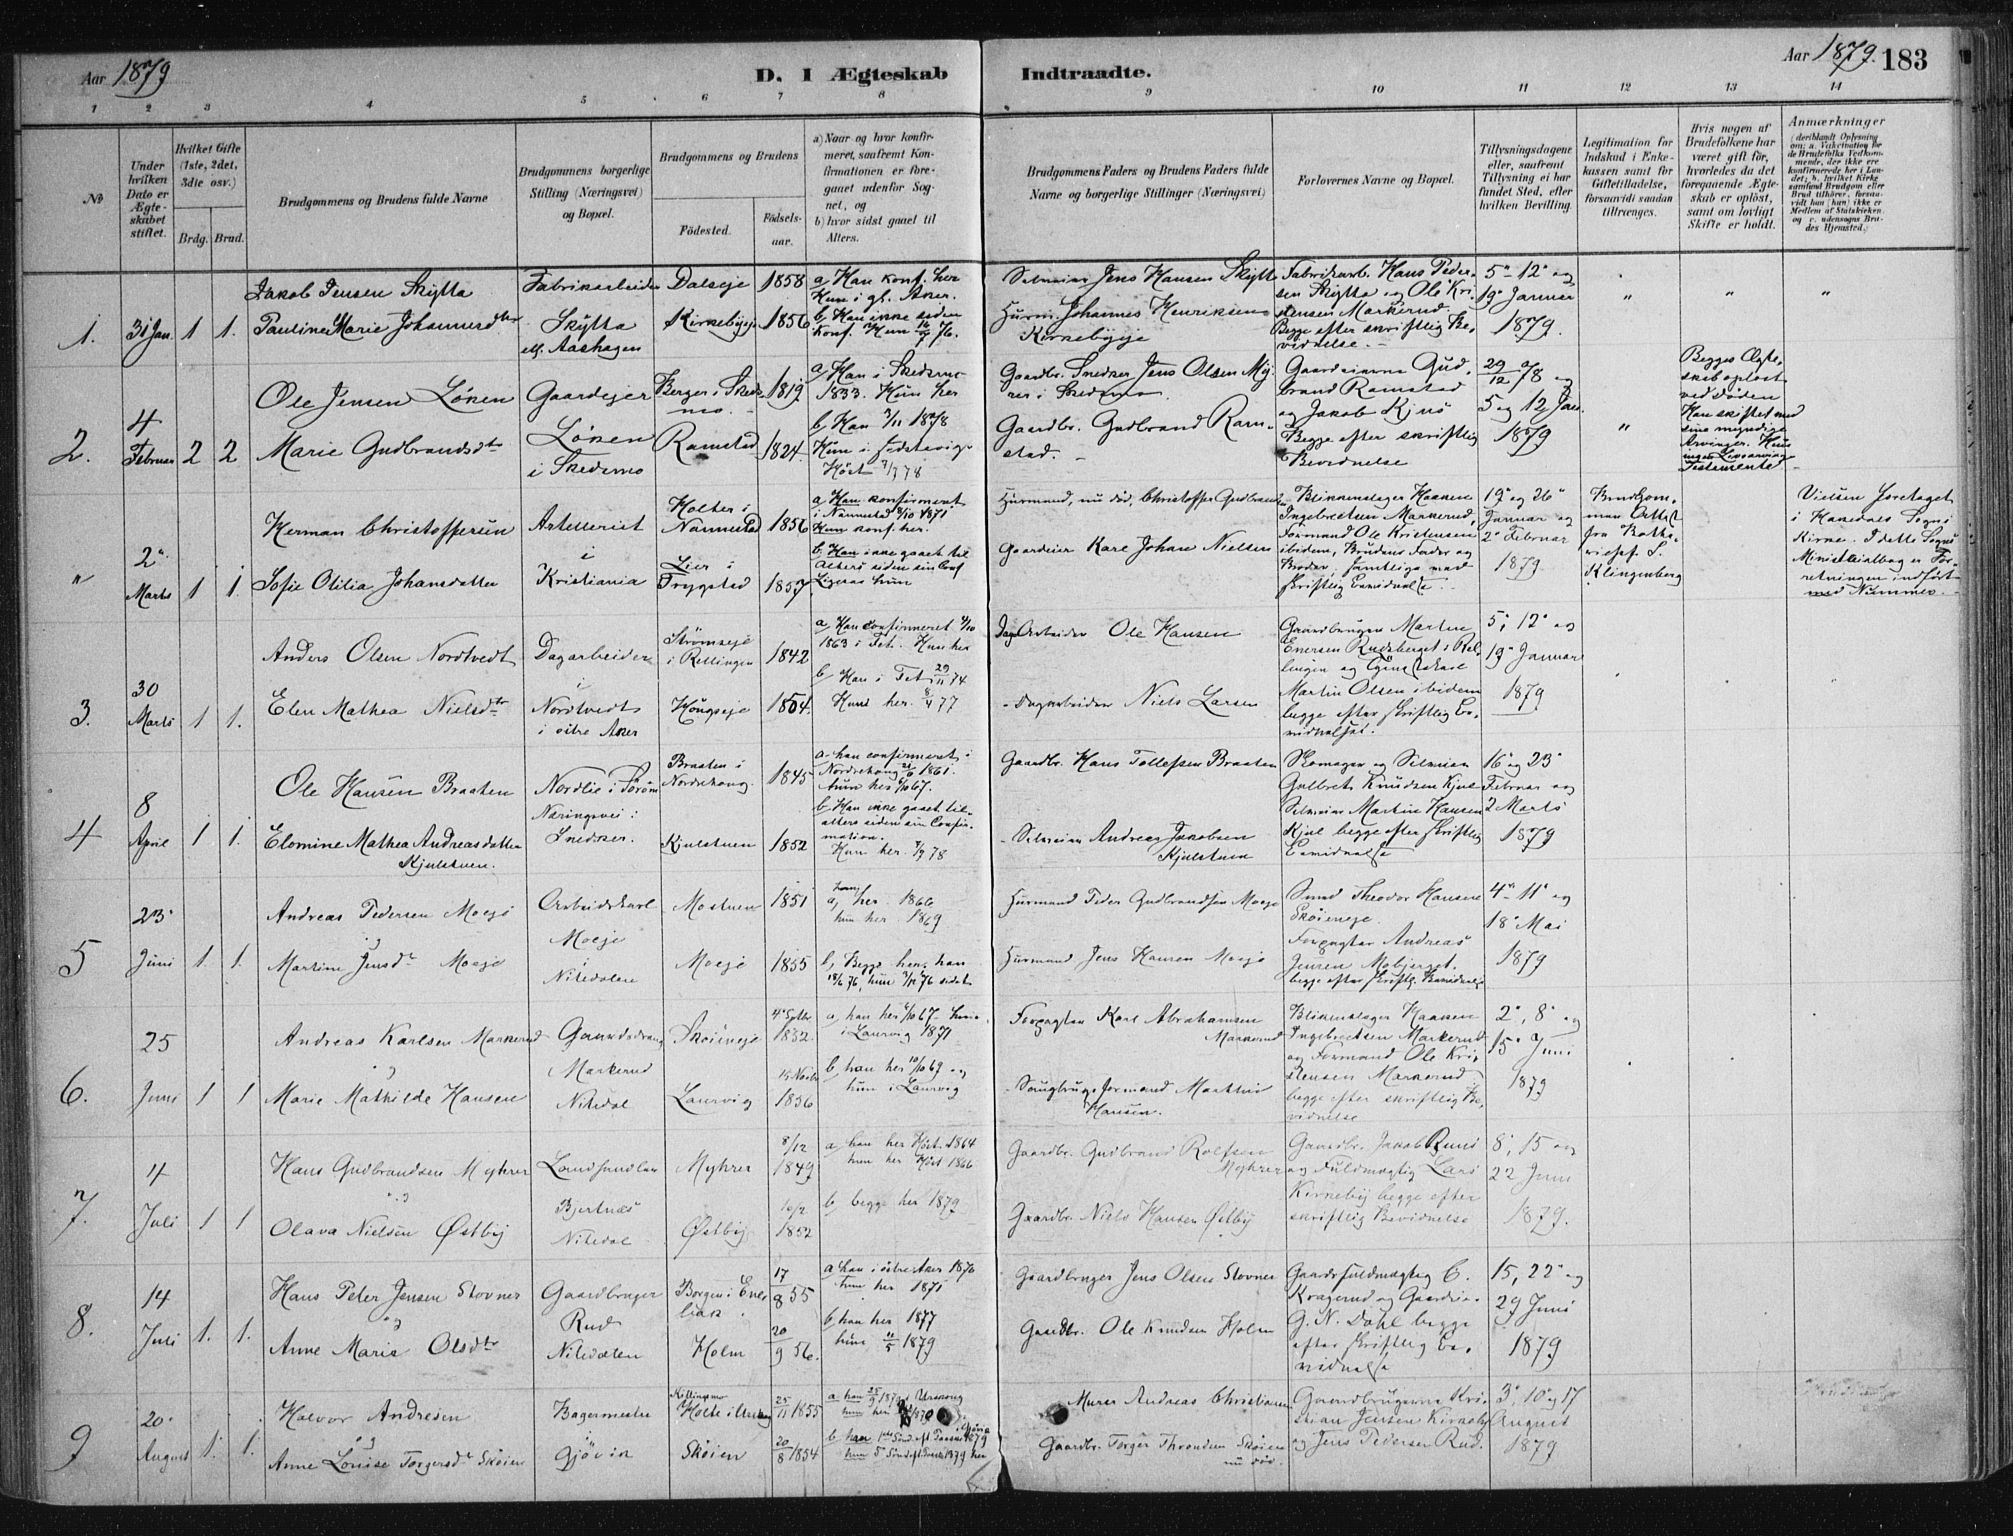 Aar 1879
D. I Ægteskab Indtraadte.
Aar 1879. 183
1 2 3 4 5 6 7 8 9 10 11 12 13 14
No
Under hvilken Dato er Ægteskabet stiftet.
Hvilket Gifte (1ste, 2det, 3die osv.)
Brdg. Brud.
Brudgommens og Brudens fulde Navne
Brudgommens borgerlige Stilling (Næringsvei) og Bopæl.
Brudgommens og Brudens
Födested.
Födselsaar.
a) Naar og hvor konfirmeret, saafremt Konfirmationen er foregaaet udenfor Sognet, og
b) hvor sidst gaaet til Alters.
Brudgommens Faders og Brudens Faders fulde Navne og borgerlige Stillinger (Næringsvei)
Forlovernes Navne og Bopæl.
Tillysningsdagene eller, saafremt Tillysning ei har fundet Sted, efter hvilken Bevilling.
Legitimation for Indskud i Enkekassen samt for Giftetilladelse, forsaavidt saadan tiltrænges.
Hvis nogen af Brudefolkene har været gift för, hvorledes da det foregaaende Ægteskab er oplöst, samt om lovligt Skifte er holdt.
Anmærkninger
1. 31 Jan. 1 1.
Jakob Jensen Skytta
Pauline Marie Johannesdtr
Fabrikarbeider
Skytta
ell. Aashagen
Dalseje 1858
Kirkebyeje 1856
a, Han konf. her
Hun i gl. Aker.
b, Han ikke siden
Konf. Hun 16/7 76.
Selveier Jens Hansen Skytt
Husm. Johannes Henriksen
Kirkebyeje
Fabrikarb. Hans Peder-
sen Skytta og Ole Kri-
stensen Markerud
Begge efter skriftlig Be-
vidnelse.
5" 12" og
19" Januar
1879.
2. 4 Februar 2 2
Ole Jensen Löken
Marie Gudbrandsdtr
Gaardejer
Löken
i Skedsmo
Berger i Skeds-
mo. 1819
Ramstad 1824.
a, Han i Skedsmo
1833. Hun her
b, Han 3/11 1878
Gaardbr. Snedker Jens Olsen My-
rer i Skedsmo
Gaardbr. Gudbrand Ram-
stad.
Gaardeierne Gud-
brand Ramstad
og Jakob Kjus
Begge efter skriftlig
Bevidnelse
29/12 78 og
5 og 12 Jan.
1879
Begges Ægte-
skab oplöst
ved döden
Han skiftet med
sine myndige
Arvinger. Hun
ingen Livsarving
Testamente
" 2" Marts 1 1.
Herman Christoffersen
Sofie Otilia Johansdatter
Artellerist
i
Kristiania
Holter i
Nannestad 1856
Lier i
Trygstad 1857
a Han konfirmeret
i Nannestad 8/10 1871
Hun konf. her.
b, Han ikke gaaet til
Alters siden sin Conf.
Ligesaa hun
Husmand, nu död, Christoffer Gudbrands
Gaardeier Karl Johan Nielsen
Blikkenslager Haaken
Ingebretsen Markerud,
Formand Ole Kristensen
ibidem, Brudens Fader og
Broder, samtlige med
skriftlig Bevidnelse
19" og 26"
Januar og
2" Februar
1879
Brudgom-
men Attest
fra Batte-
richef S.
Klingenberg
Vielsen foretaget
i Hakedals Sogns
Kirke. I dette Sogns
Ministerialbog er For-
retningen indfört
med Nummer.
3. 30 Marts 1 1.
Anders Olsen Nordtvedt
Elen Mathea Nielsdtr
Dagarbeider
i
Nordtvedt
i östre Aker
Strömseje
i Rellingen 1842
Kongseje 1854.
a, Han confirmeret 4/10
1863 i Fet. Hun her
b, Han i Fet 29/11 74
Hun her. 8/4 77
Dagarbeider Ole Hansen
Dagarbeider Niels Larsen
Gaardbruger Martin
Enersen Rudsberget i Rel-
lingen og Tjenestekarl
Martin Olsen ibidem
begge efter skriftlig Be-
vidnelse.
5, 12" og
19" Januar
1879
4 8 April 1 1.
Ole Hansen Braaten
Elomine Mathea Andreasdatter
Kjulstuen.
Nordlie i Sörum
Næringsvei:
Snedker.
Braaten i
Nordrehoug 1845
Kjulstuen 1852
a han confirmeret i
Nordrehoug 1861.
hun her 6/10 67.
b, Han ikke gaaet til
alters siden sin Confir-
mation.
Hun her. 7/9 78
Gaardbr. Hans Tollefsen Braaten
Selveier Andreas Jakobsen
Kjulstuen
Skomager og Selveier
Gulbret Knudsen Kjul
Selveier Martin Hansen
Kjul begge efter skriftlig
Bevidnelse
16" og 23"
Februar og
2 Marts
1879
5 23" Juni 1. 1.
Andreas Pedersen Moeje
og
Martine Jensdtr Moeje
Arbeidskarl
Moeje
i
Nitedalen
Mostuen 1851
Moeje 1855
a, her 1866
hun her. 1869
b, Begge her, han
18/6 76, hun 76 sidst
Husmand Peder Gudbrandsen Moeje
Husmand Jens Hansen Moeje
Smed Theodor Hansen
Sköieneje.
Forpagter Andreas
Jensen Mobjerget.
begge efter skriftlg. Bevidnelse
4" 11" og
18" Mai
1879
6. 25 Juni 1 1
Andreas Karlsen Markerud
og
Marie Mathilde Hansen
Gaardsdreng
Markerud
Nitedal
Sköieneje 4" Septbr 1852.
Laurvig 15 Novbr 1856
a, han her 6/10 67. hun
i Laurvig 1871
b han her 10/10 69 og
hun i Laurvig
Forpagter Karl Abrahamsen
Markerud
Saugbrugsformand Matthis
Hansen.
Blikkenslager Haaken
Ingebretsen Markerud
og Formand Ole Kri-
stensen Markerud
begge efter skriftlig Be-
vidnelse
2", 8" og
15" Juni
1879
7. 4 Juli 1 1
Hans Gudbrandsen Myhrer
og
Olava Nielsen Østby
Landhandler
Bjertnæs
Nitedal
Myhrer 8/12 1849
Østby 16/2 1852
a, han her Höst. 1864
hun her Höst 1866
b, begge her 1879
Gaardbr. Gudbrand Rolfsen
Myhrer
Gaardbr. Niels Hansen Østby
Gaardbr. Jakob Ruus
og Fuldmægtig Lars
Kirkeby begge efter
skriftlig Bevidnelse
8, 15 og
22 Juni
1879.
8. 14 Juli 1. 1.
Hans Peter Jensen Stovner
og
Anne Marie Olsdtr
Gaardbruger
Rud
Nitedalen
Borgen i Ene-
bak 17/8 55
Holm 20/9 56.
a han i östre Aker 1870
hun her 1871
b han her 1877
hun 11/5 1879
Gaardbruger Jens Olsen Stovner
Gaardbr. Ole Knudsen Holm
Gaardsfuldmægtig C.
Kragerud og Gaardeier
G. N. Dahl begge
efter skriftlig Be-
vidnelse
15, 22" og
29 Juni
1879
9 20" August 1. 1.
Halvor Andresen
og
Anne Louise Torgersdtr Sköien
Bagermester
Gjövik
Holte i Urskog 25/11 1855
Sköien 20/8 1854
Murer Andreas Christiansen
Gaardbr. Torger Throndsen Sköien
nu död.
Gaardbrugerne Kri-
stian Jensen Kirkeby
og Jens Pedersen Rud.
3" 10" og 17
August
1879